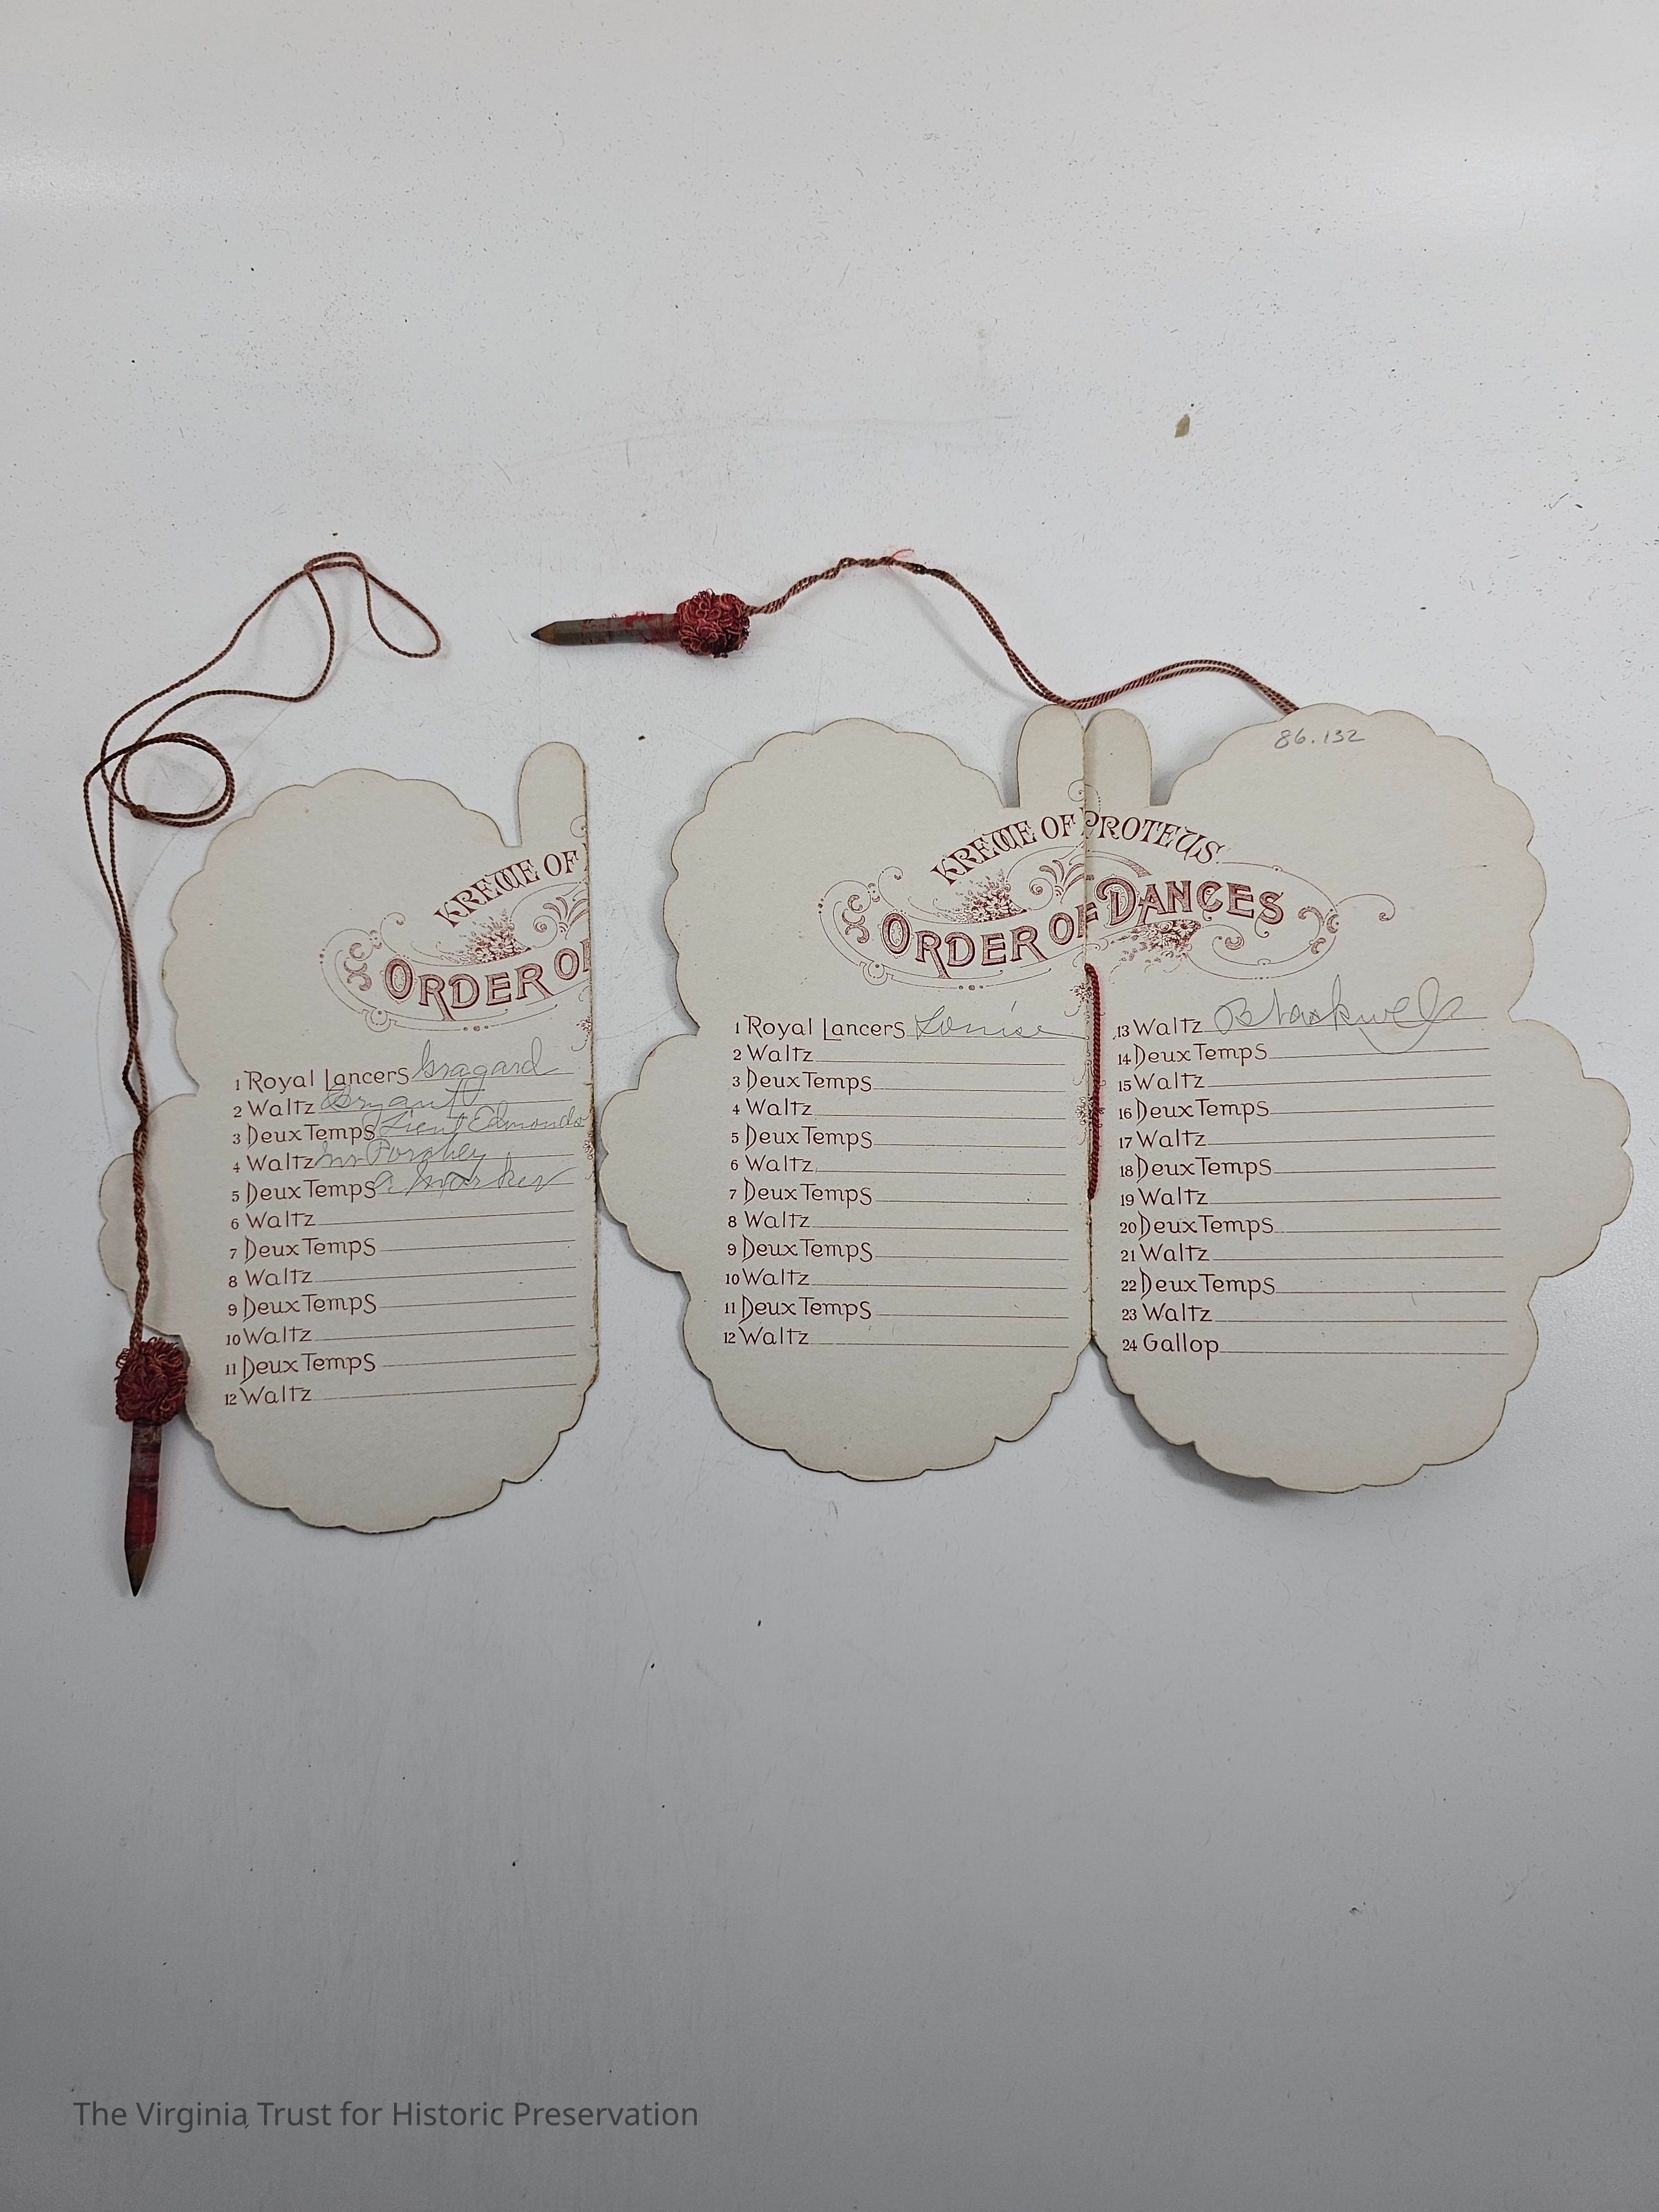 KREWE OF
ORDER OF
1 Royal Lancers Gragard
2 Waltz Bryant
3 Deux Temps Lieut Edmonds
4 Waltz Mr
5 Deux Temps
6 Waltz
7 Deux Temps
8 Waltz
9 Deux Temps
10 Waltz
11 Deux Temps
12 Waltz
86.132
KREWE OF PROTEUS
ORDER OF DANCES
1 Royal Lancers Louise
2 Waltz
3 Deux Temps
4 Waltz
5 Deux Temps
6 Waltz
7 Deux Temps
8 Waltz
9 Deux Temps
10 Waltz
11 Deux Temps
12 Waltz
13 Waltz
14 Deux Temps
15 Waltz
16 Deux Temps
17 Waltz
18 Deux Temps
19 Waltz
20 Deux Temps
21 Waltz
22 Deux Temps
23 Waltz
24 Gallop
The Virginia Trust for Historic Preservation